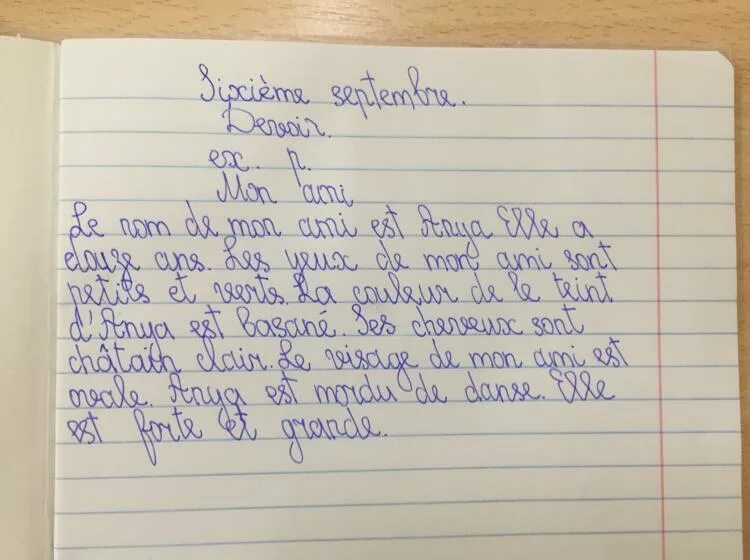 Sixième septembre.
Devoir.
ex. p.
Mon ami
Le nom de mon ami est Anya Elle a
douze ans. Les yeux de mon ami sont
petits et verts. La couleur de le teint
d'Anya est basané. Ses cheveux sont
châtain clair. Le visage de mon ami est
ovale. Anya est mordu de danse. Elle
est forte et grande.